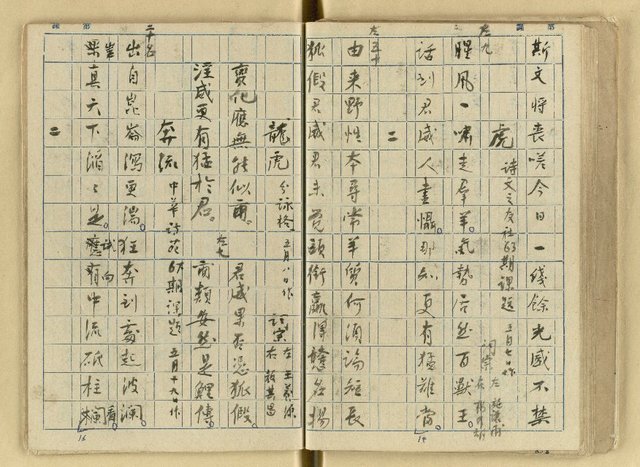 斯文将喪嗟今日一綫餘光感不禁
虎 詩文之友社63期課題 五月七日作
左九
腥風一嘯走羣羊。氣勢居然百獸王。
話到君威人盡懼。那知更有猛難當。
二
左五十
由来野性本尋常羊質何須論短長
狐假君威君未覓頭銜贏得憑名揚
龍虎 分詠格 五月八日作 詞宗 左 王 右
君威果否憑狐假。
變化應無能似爾。
左七
淫威更有猛於君。
商類安然是鯉傳。
奔流 中華詩苑67期課題 五月十九日作
二十名
出自崑崙瀉更湍。狂奔到處起波瀾。
果真天下滔々是。試向 應有中流砥柱看。
二
14
16